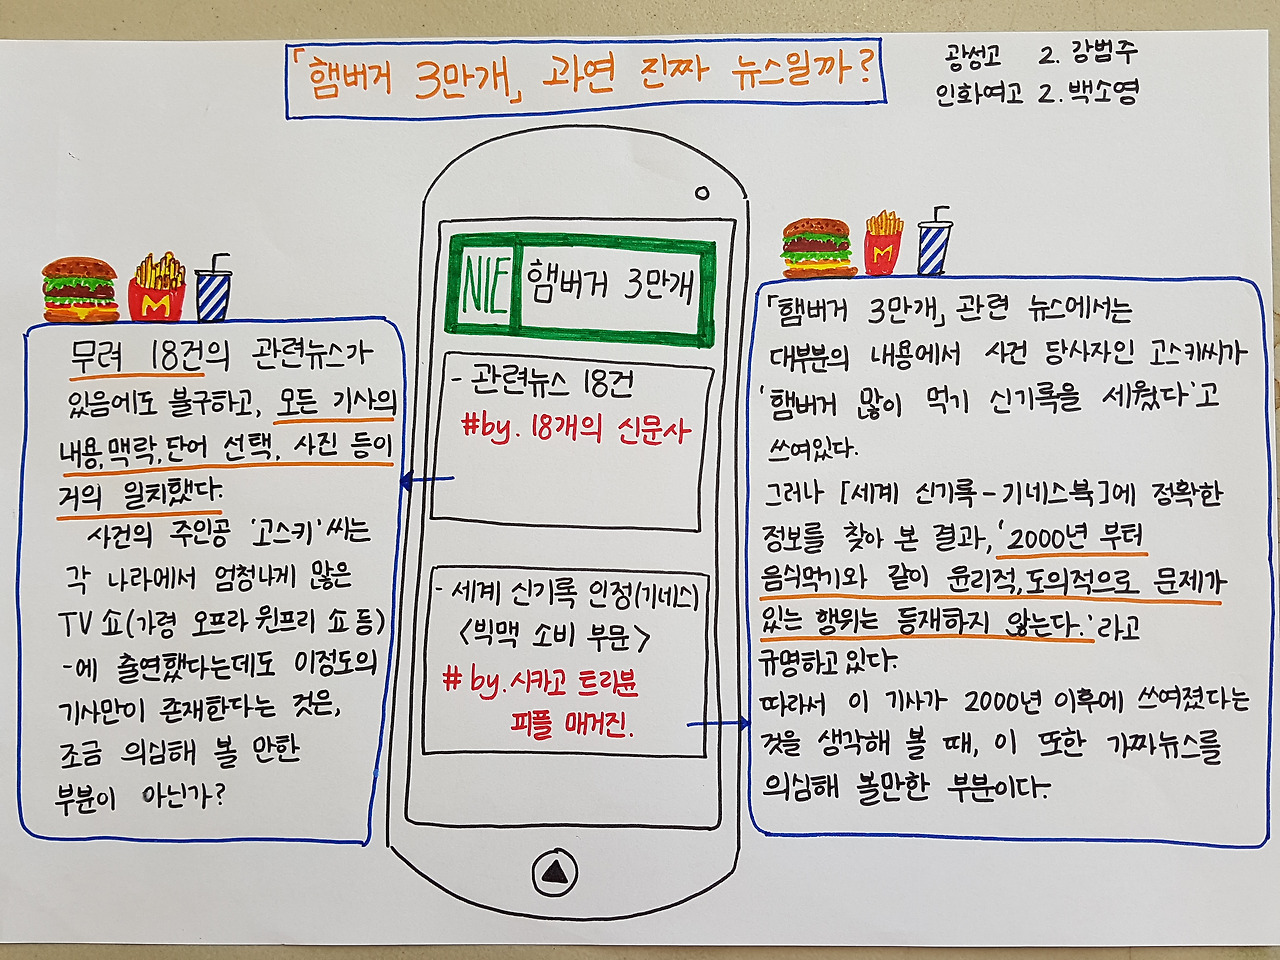 「햄버거 3만개」 과연 진짜 뉴스일까?
광성고 2. 강범주
인화여고 2. 백소영
NIE 햄버거 3만개
- 관련뉴스 18건
#by. 18개의 신문사
- 세계 신기록 인정(기네스)
<빅맥 소비 부문>
# by. 시카고 트리뷴
피플 매거진.
M
무려 18건의 관련뉴스가
있음에도 불구하고, 모든 기사의
내용, 맥락, 단어 선택, 사진 등이
거의 일치했다.
사건의 주인공 '고스키'씨는
각 나라에서 엄청나게 많은
TV 쇼(가령 오프라 윈프리 쇼 등)
-에 출연했다는데도 이정도의
기사만이 존재한다는 것은,
조금 의심해 볼 만한
부분이 아닌가?
M
「햄버거 3만개」 관련 뉴스에서는
대부분의 내용에서 사건 당사자인 고스키씨가
'햄버거 많이 먹기 신기록을 세웠다'고
쓰여있다.
그러나 [세계 신기록-기네스북]에 정확한
정보를 찾아 본 결과, '2000년 부터
음식먹기와 같이 윤리적, 도의적으로 문제가
있는 행위는 등재하지 않는다.'라고
규명하고있다.
따라서 이 기사가 2000년 이후에 쓰여졌다는
것을 생각해 볼 때, 이 또한 가짜뉴스를
의심해 볼만한 부분이다.